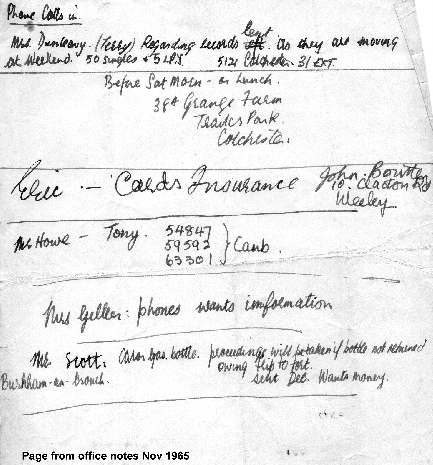 Phone Calls in
Mrs. Dunleavy. (Terry) Regarding records left lent. As they are moving
at Weekend. 50 Singles + 5 LPs. 5121 Colchester 31 EXT
Before Sat Morn - or Lunch.
38A Grange Farm
Trailer Park.
Colchester.
Eric - Cards Insurance
John Bowtle
10. Clacton Rd
Weeley
Mr Howe - Tony. 54847
59592 } Camb.
63301
Mrs Geller: phones wants imformation
Mr. Scott. Calor Gas. bottle. proceedings will be taken if bottle not returned
Burnham-on-Crouch. owing flip to fort.
sent Dec. Wants money.
Page from office notes Nov 1965